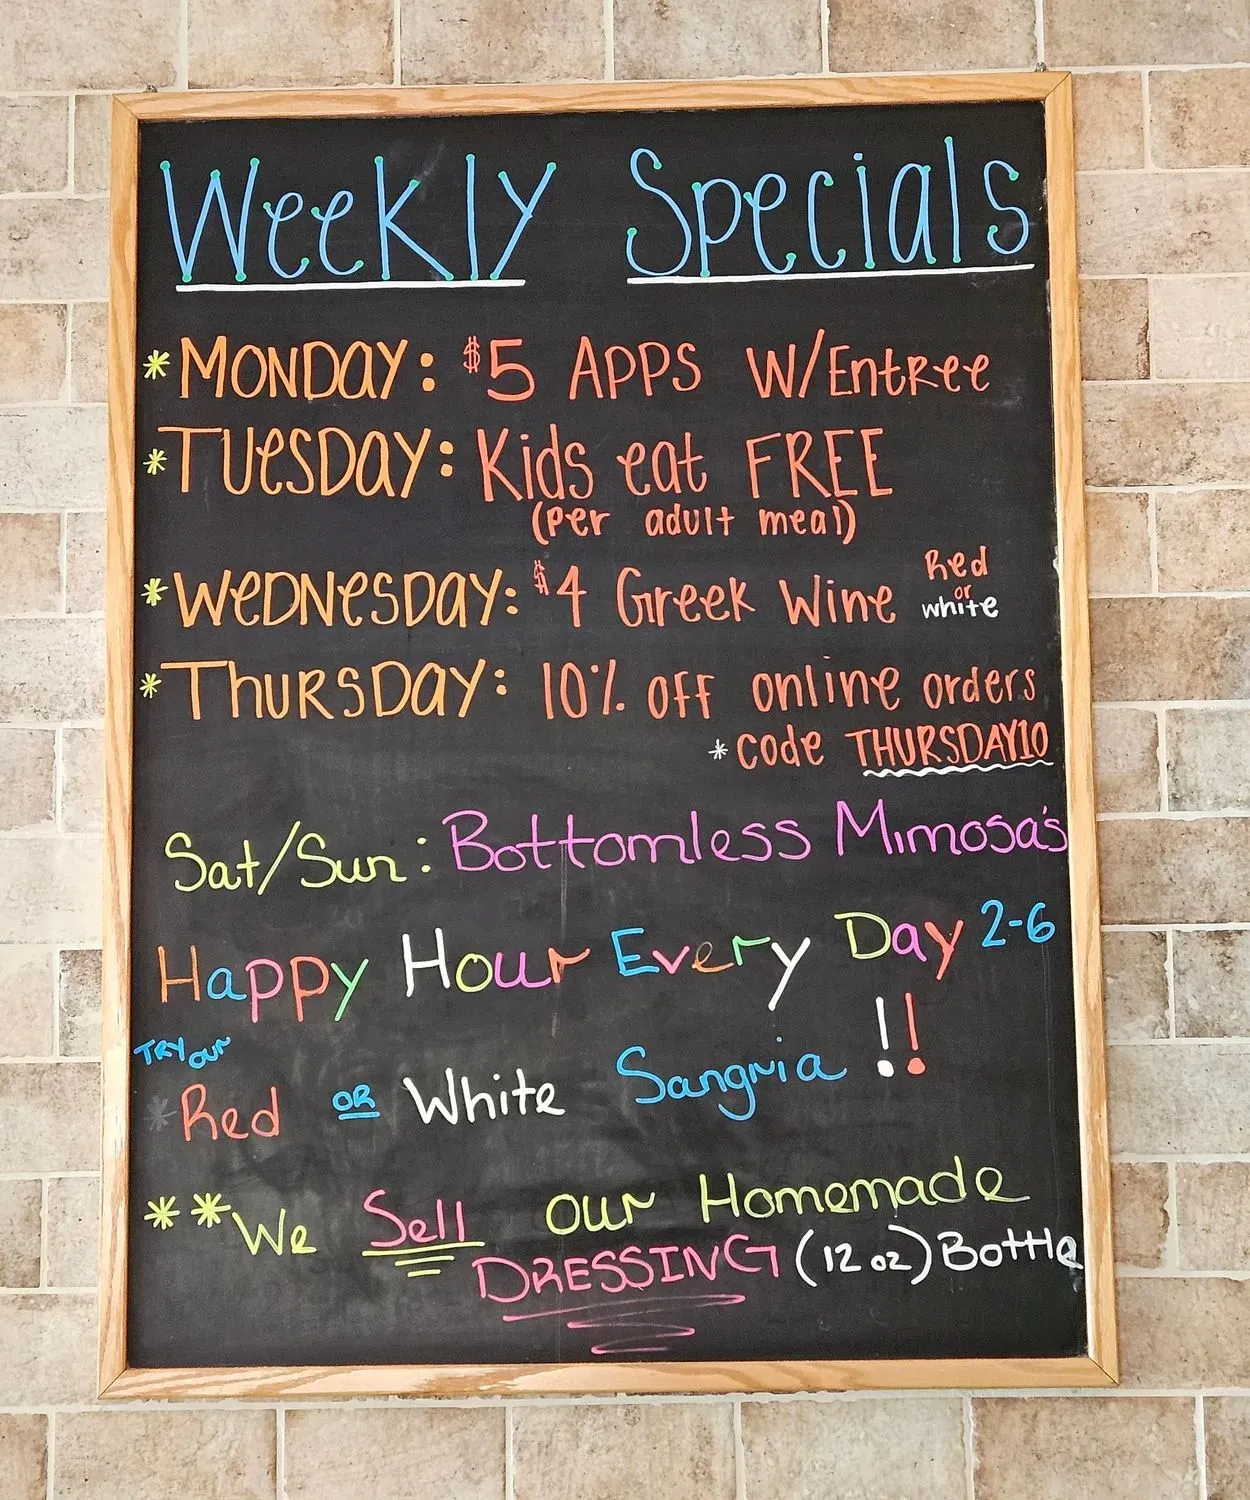 Weekly Specials
* MONDAY: $5 APPS W/Entree
* TUesDAY: Kids eat FREE
(per adult meal)
* WeDNesDAY: $4 Greek Wine Red or white
* THURSDAY: 10% off online orders
* code THURSDAY10
Sat/Sun: Bottomless Mimosa's
Happy Hour Every Day 2-6
TRY our
* Red OR White Sangria !!
** We Sell our Homemade
DRESSING (12 oz) Bottle